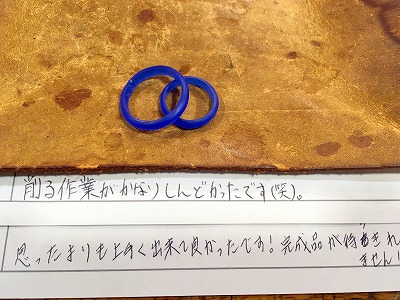 削る作業がかなりしんどかったです(笑)。
思ったよりも上手く出来て良かったです!完成品が待ちきれ
ません!